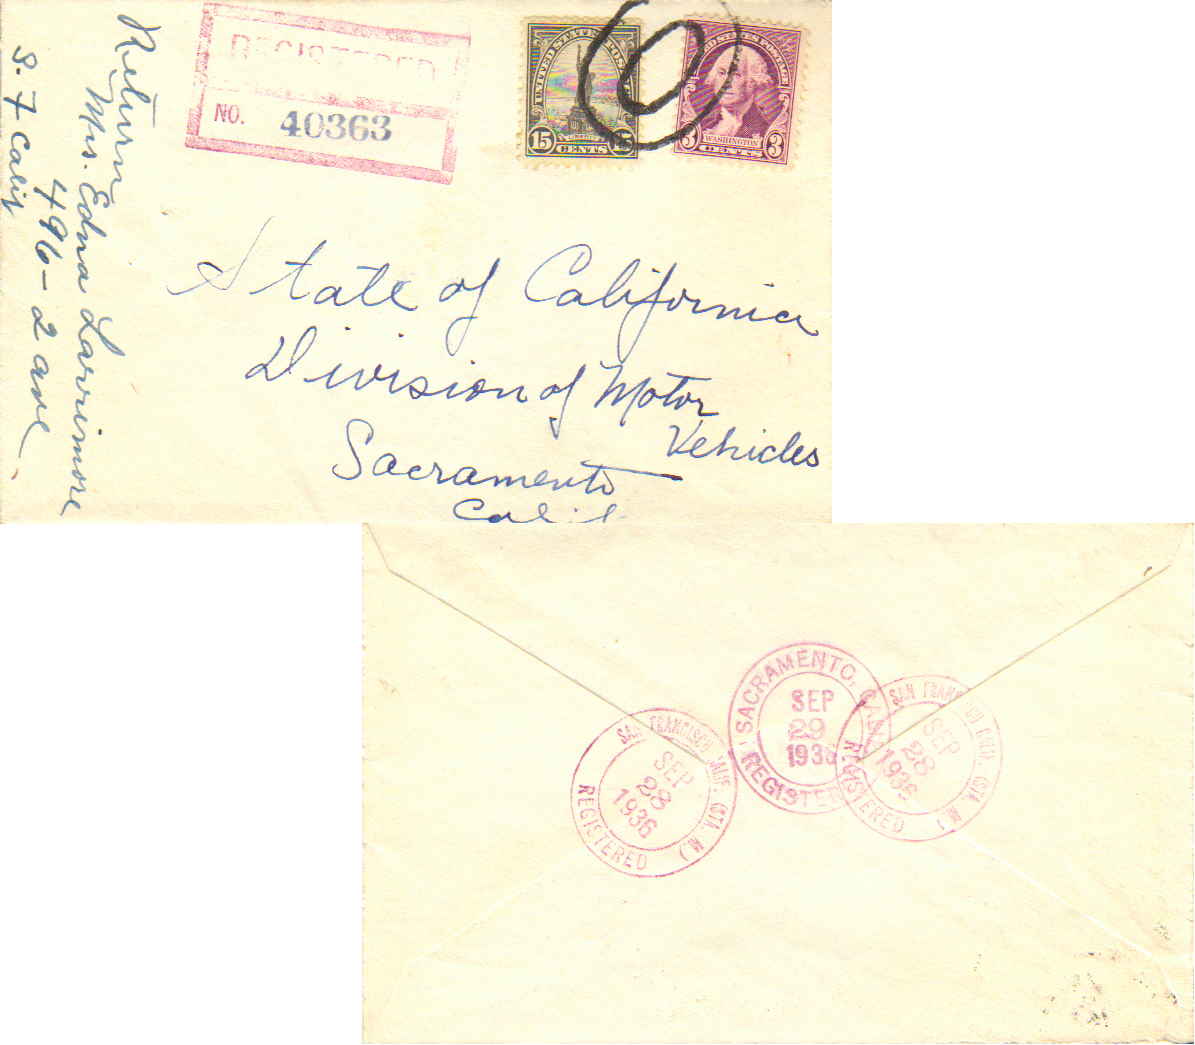 Return
Mrs. Edna Larrimore
496 - 2 ave
S. F Calif
REGISTERED
NO. 40363
UNITED STATES POSTAGE
15 15
CENTS
UNITED STATES POSTAGE
WASHINGTON
3 CENTS 3
State of California
Division of Motor
Vehicles
Sacramento
Calif
SAN FRANCISCO, CALIF. (STA. M.)
SEP
28
1936
REGISTERED
SACRAMENTO, CAL
SEP
29
1936
REGISTERED
SAN FRANCISCO CALIF. (STA. M.)
SEP
28
1936
REGISTERED